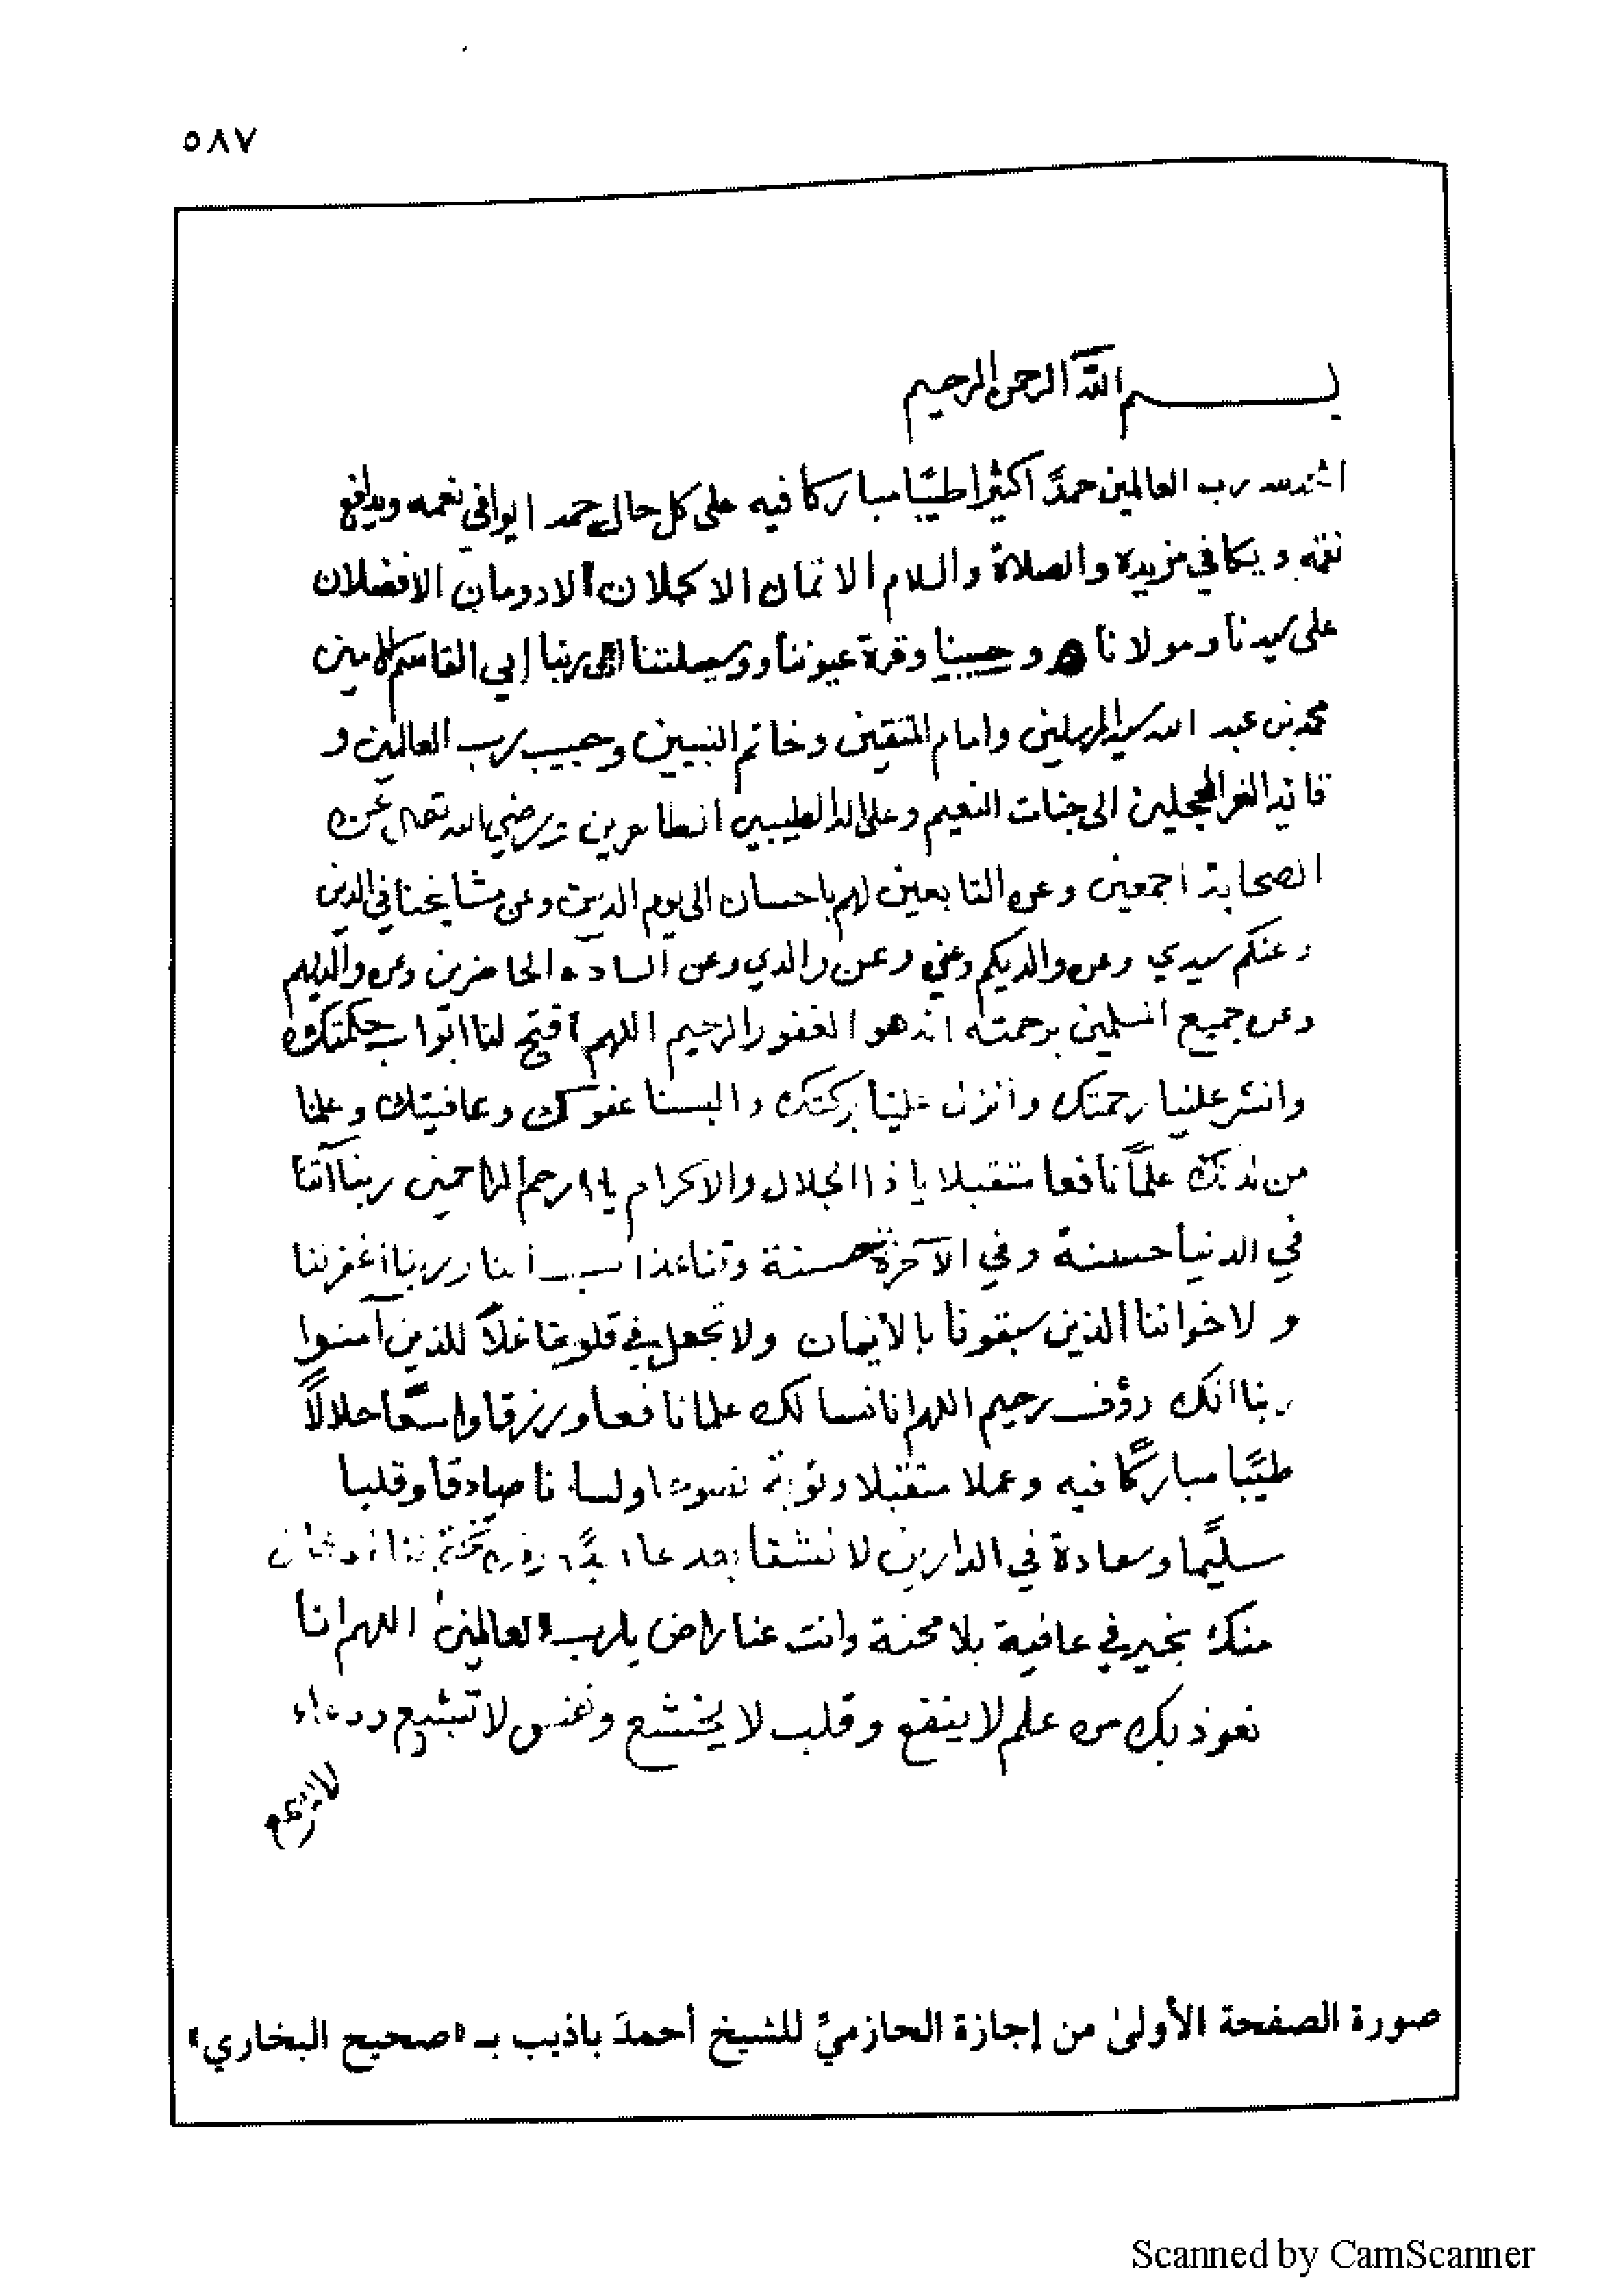 ٥٨٧
بسم الله الرحمن الرحيم
الحمد لله رب العالمين حمدًا كثيرًا طيبًا مباركا فيه على كل حال حمدا يوافي نعمه ويدافع
نقمه ويكافي مزيده والصلاة والسلام الاتمان الاكملان الادومان الافضلان
على سيدنا ومولانا وحبيبنا وقرة عيوننا ووسيلتنا الى ربنا ابي القاسم الامين
محمد بن عبد الله سيد المرسلين وامام المتقين وخاتم النبيين وحبيب رب العالمين و
قائد الغر المحجلين الى جنات النعيم وعلى اله الطيبين الطاهرين ورضي الله تعالى عن
الصحابة اجمعين وعن التابعين لهم باحسان الى يوم الدين وعن مشايخنا في الدين
وعنكم سيدي وعن والديكم وعني وعن والدي وعن السادة الحاضرين وعن والديهم
وعن جميع المسلمين برحمته انه هو الغفور الرحيم اللهم افتح لنا ابواب حكمتك
وانشر علينا رحمتك وانزل علينا بركتك والبسنا عفوك وعافيتك وعلمنا
من لدنك علمًا نافعا متقبلا يا ذا الجلال والاكرام يا ارحم الراحمين ربنا آتنا
في الدنيا حسنة وفي الآخرة حسنة وقنا عذاب النار ربنا اغفر لنا
و لاخواننا الذين سبقونا بالايمان ولا تجعل في قلوبنا غلاً للذين آمنوا
ربنا انك رؤف رحيم اللهم انا نسالك علما نافعا ورزقا واسعًا حلالاً
طيبًا مباركًا فيه وعملا متقبلا وتوبة نصوحا ولسانا صادقا وقلبا
سليمًا وسعادة في الدارين لا نشقا بعدها ابدًا
منك بخير في عافية بلا محنة وانت عنا راض يارب العالمين اللهم انا
نعوذ بك من علم لا ينفع وقلب لا يخشع ونفس لا تشبع ودعاء
لا يسمع
صورة الصفحة الأولىٰ من إجازة الحازميّ للشيخ أحمدَ باذيب بـ «صحيح البخاري»
Scanned by CamScanner